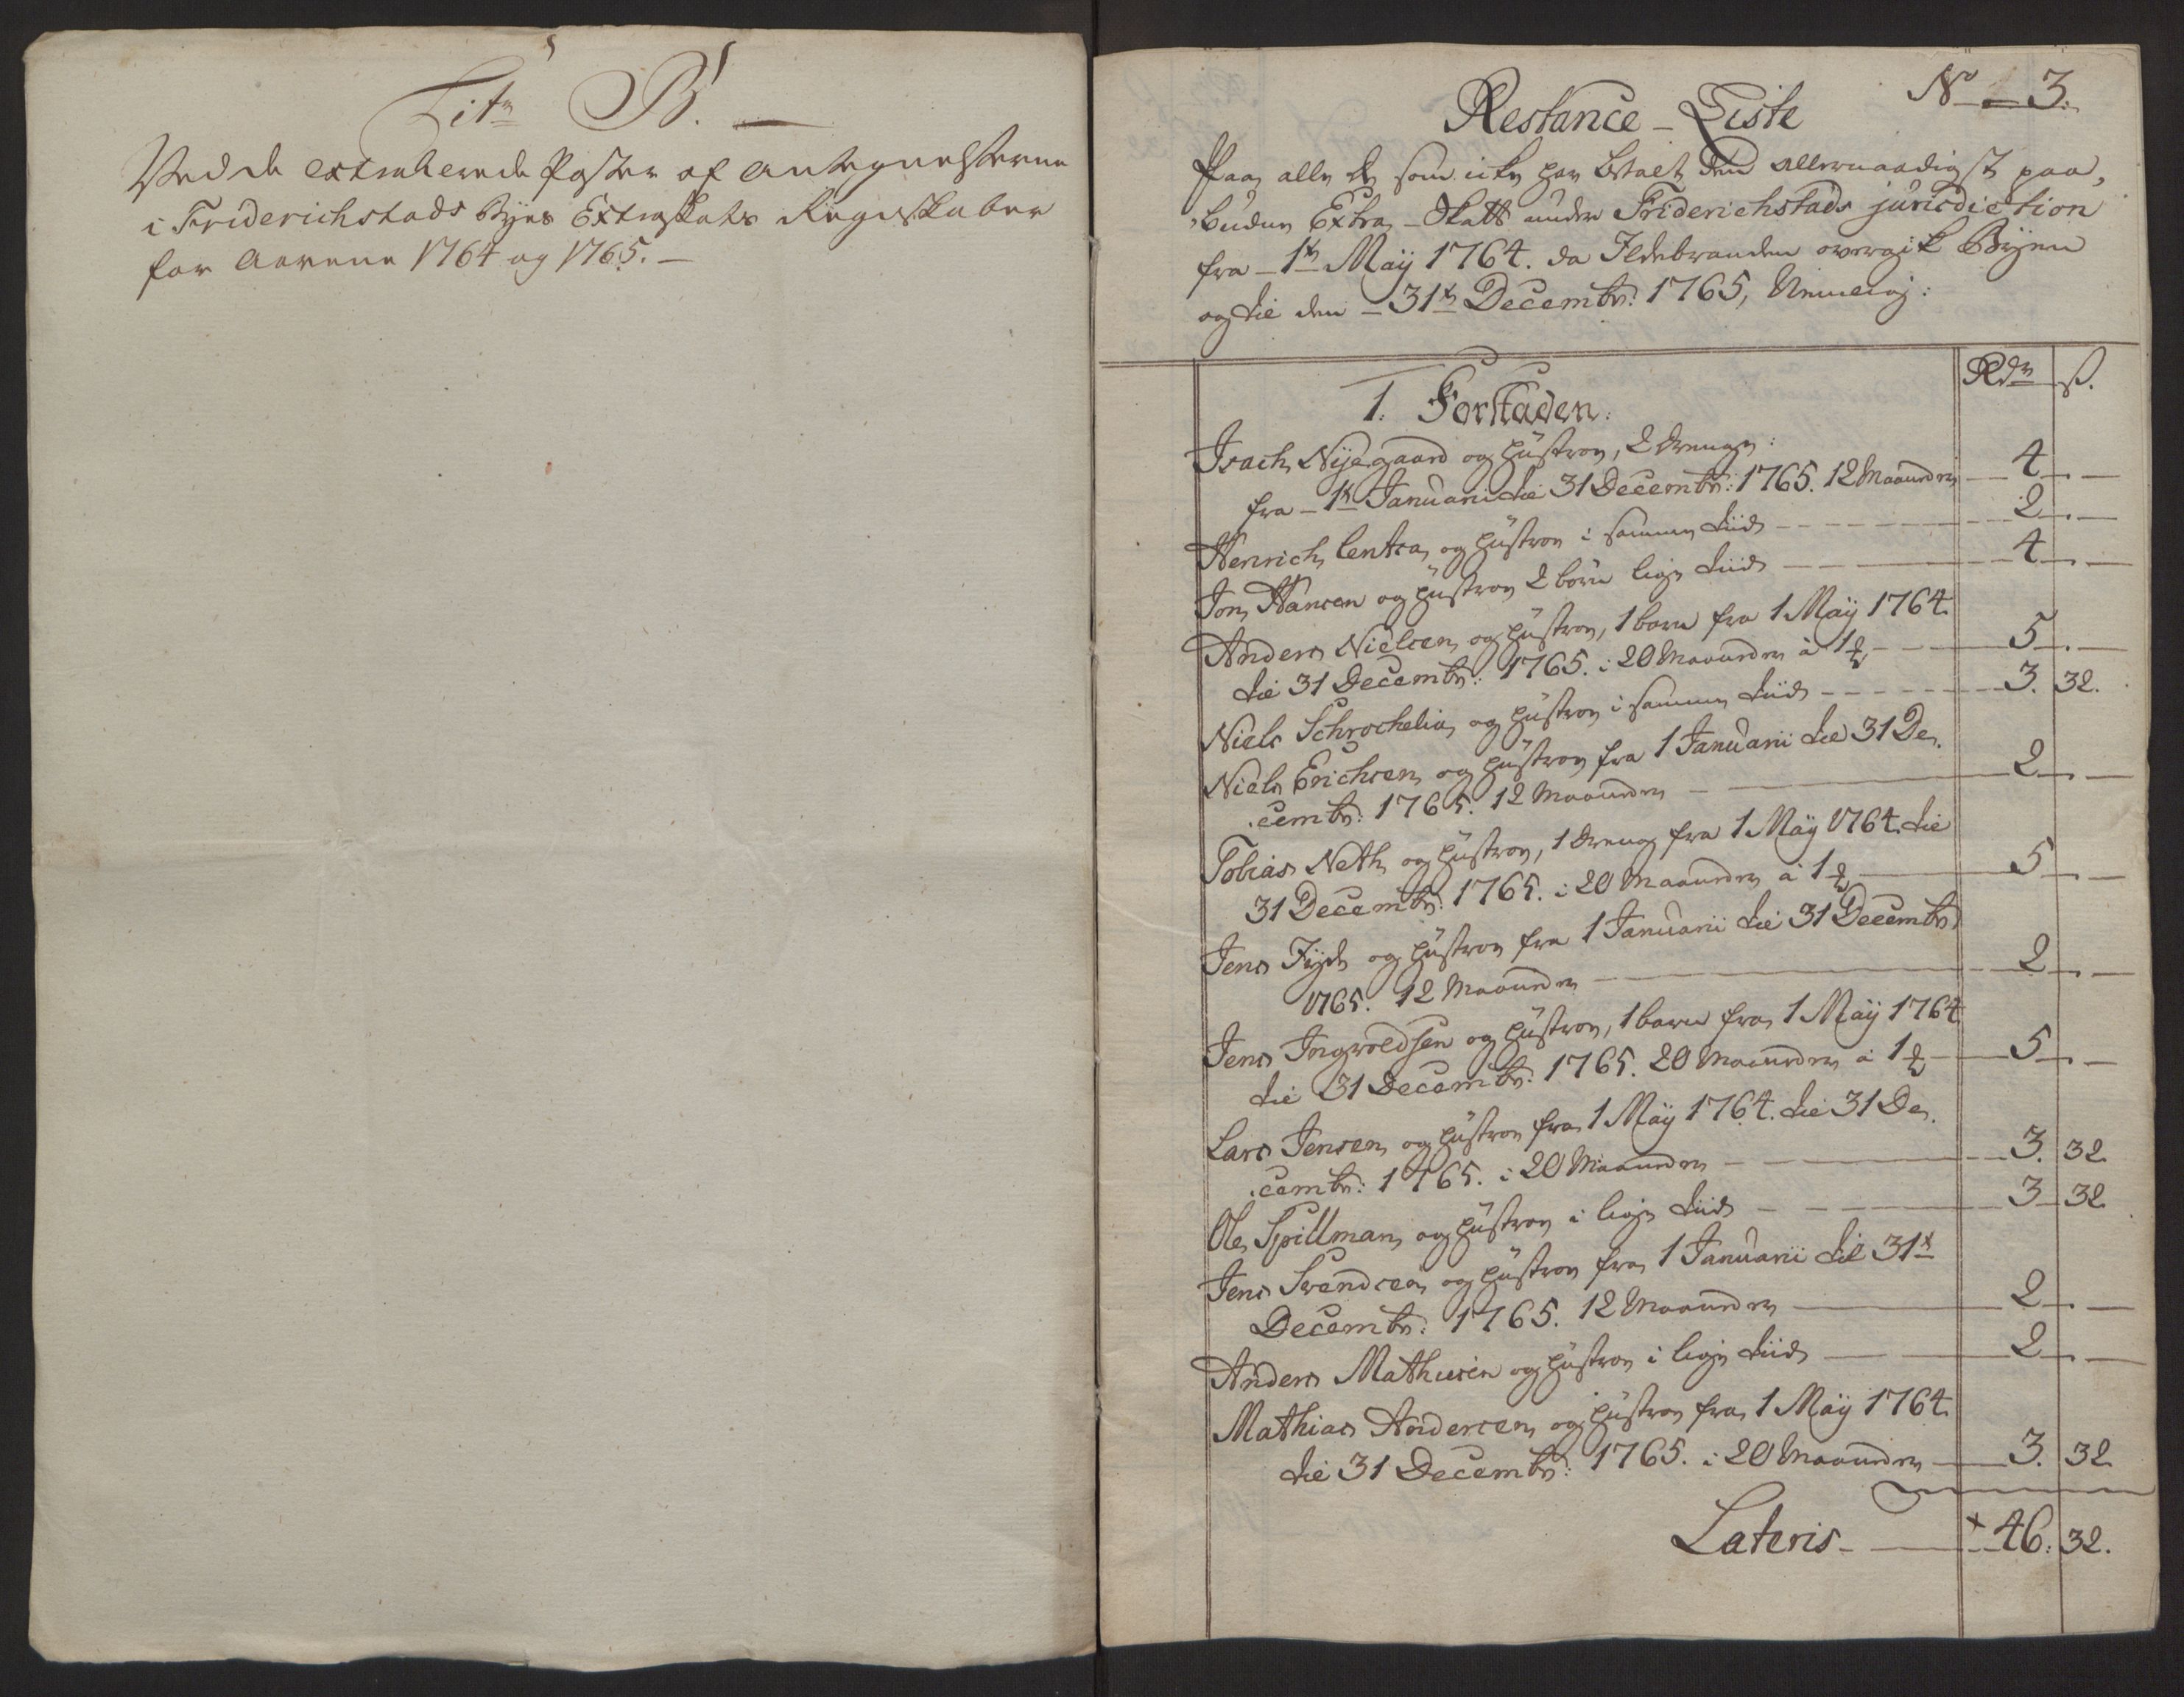 Litr B.
Ved de extraherede Poster af Antegnelserne
i Friderichstads Byes Extraskats Regnskaber
for Aarene 1764 og 1765.
No 3.
Restance-Liste
Paa alle de som icke har betalt den allernaadigst paa-
budne Extra-Skatt under Friderichstads jurisdiction
fra 1te Maÿ 1764. da Ildebranden overgik Bÿen
og til den 31te Decembr: 1765, Nemlig:
Rdr ß.
1. Forstaden.
Isach Nÿegaard og hustroe, 2 drenge:
fra 1te Januari til 31 Decembr: 1765. 12 Maaneder 4 . —
Henrich Centra og hustroe i samme tiid 2 . —
Jon Hansen og hustroe 2 børn lige tiid 4 . —
Anders Nielsen og hustroe, 1 barn fra 1 Maÿ 1764
til 31 Decembr: 1765. i 20 Maaneder à 1 5 . —
Niels Schrochelia og hustroe i samme tiid 3. 32.
Niels Erichsen og hustroe fra 1 Januarii til 31 De-
cembr: 1765. 12 Maaneder 2 . —
Tobias Neth og hustroe, 1 dreng fra 1 Maÿ 1764. til
31 Decembr: 1765. i 20 Maaneder à 1 5 . —
Jens og hustroe fra 1 Januarii til 31 Decembr
1765. 12 Maaneder 2 . —
Jens Ingvoldsen og hustroe, 1 barn fra 1 Maÿ 1764
til 31 Decembr: 1765. 20 Maaneder à 1 5 . —
Lars Jensen og hustroe fra 1 Maÿ 1764. til 31 De-
cembr: 1765. i 20 Maaneder 3. 32
Ole Spillman og hustroe i lige tiid 3 32
Jens Svendsen og hustroe fra 1 Januarii til 31te
Decembr: 1765. 12 Maaneder 2 . —
Anders Mathiesen og hustroe i lige tiid 2 . —
Mathias Andersen og hustroe fra 1 Maÿ 1764
til 31 Decembr: 1765. i 20 Maaneder 3. 32
Lateris 46. 32.